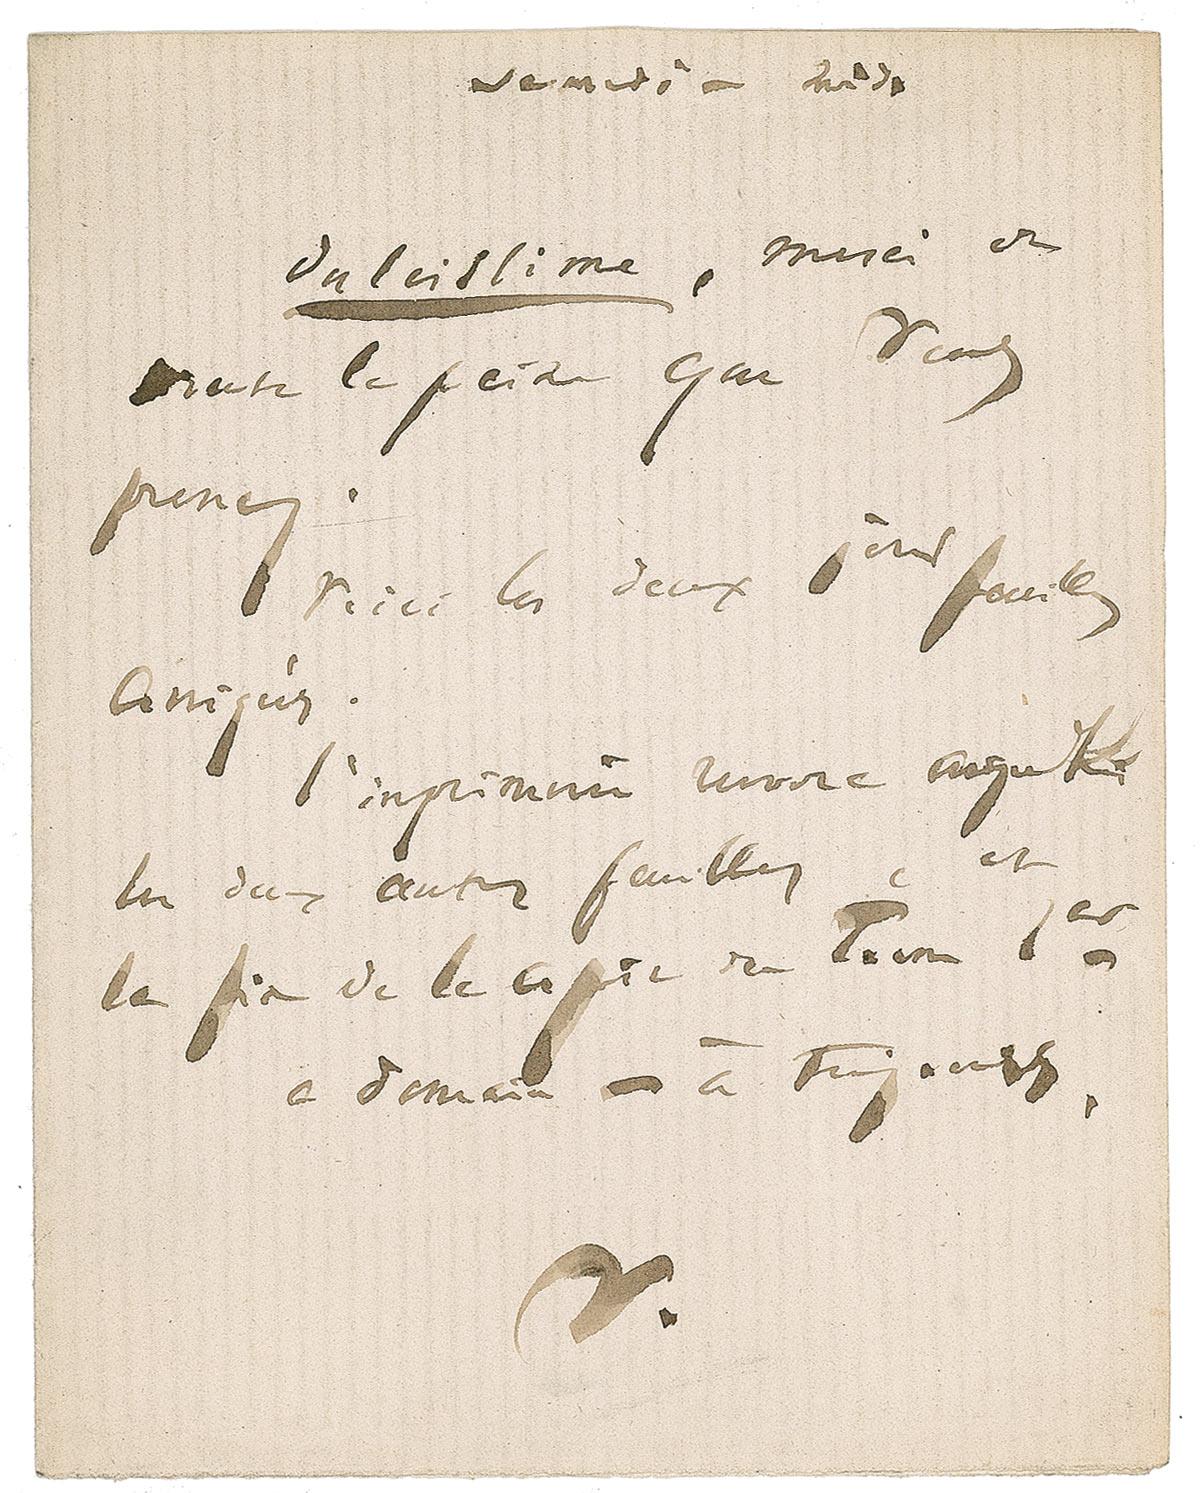 samedi – midi
dulcissime, merci de
toute la peine que vous
prenez.
Voici les deux feuilles
corrigées.
l'imprimerie aujourd'hui
les deux autres feuilles, et
la fin de la copie du Tome 1er –
à demain – à toujours,
V.